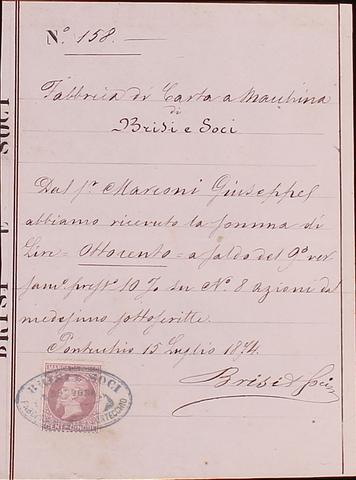 N.º 158.
Fabbrica di Carta a Macchina
di
Brisi e Soci
Dal Sr. Marconi Giuseppe
abbiamo ricevuto la somma di
Lire = Ottocento = a saldo del 9º ver
sam.º 10 % su Nº 8 azioni dal
medesimo sottoscritte.
15 Luglio 1874
Brisi & Soci
BRISI E SOCI
BRISI E SOCI